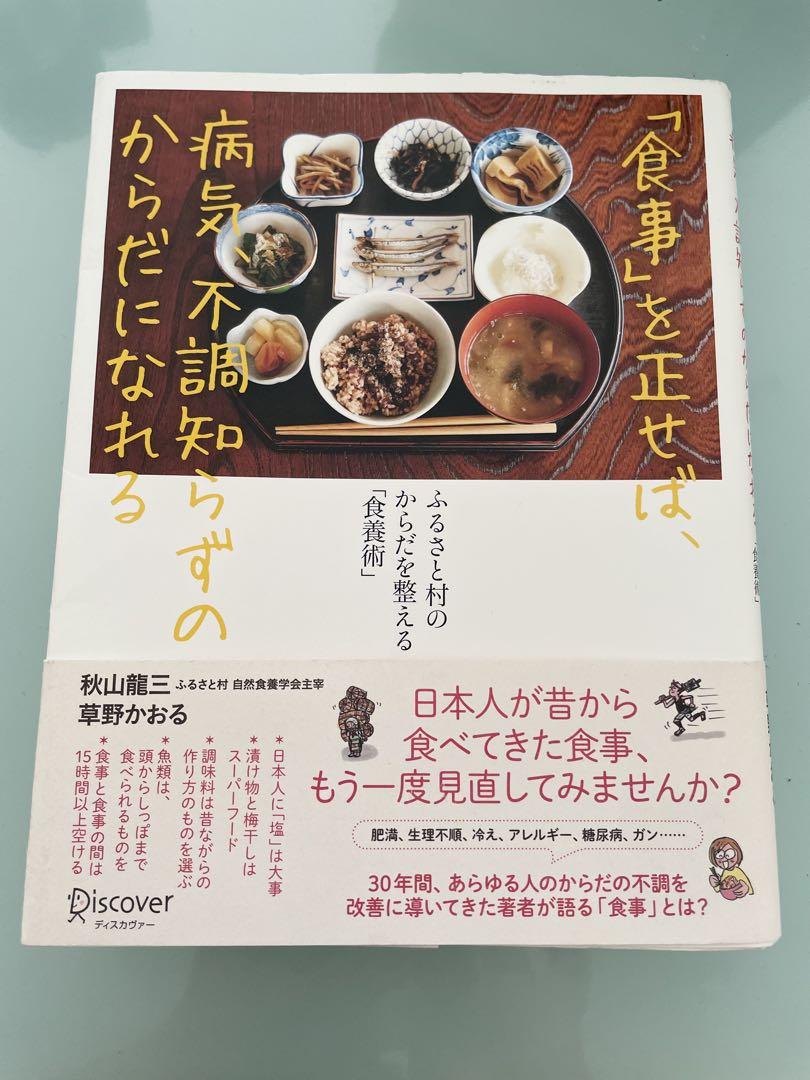 「食事」を正せば、
病気、不調知らずの
からだになれる
ふるさと村の
からだを整える
「食養術」
秋山龍三 ふるさと村 自然食養学会主宰
草野かおる
＊日本人に「塩」は大事
＊漬け物と梅干しは
スーパーフード
＊調味料は昔ながらの
作り方のものを選ぶ
＊魚類は、
頭からしっぽまで
食べられるものを
＊食事と食事の間は
15時間以上空ける
Discover
ディスカヴァー
日本人が昔から
食べてきた食事、
もう一度見直してみませんか?
肥満、生理不順、冷え、アレルギー、糖尿病、ガン……
30年間、あらゆる人のからだの不調を
改善に導いてきた著者が語る「食事」とは?